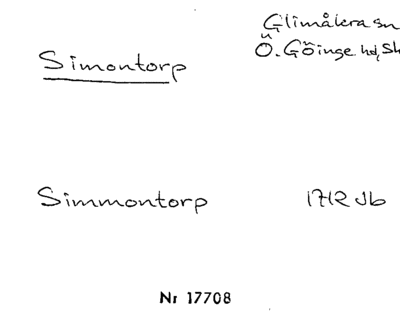 Glimåkra sn
Simontorp
Ö. Göinge hd, Sk
Simmontorp 1712 Jb
Nr 17708